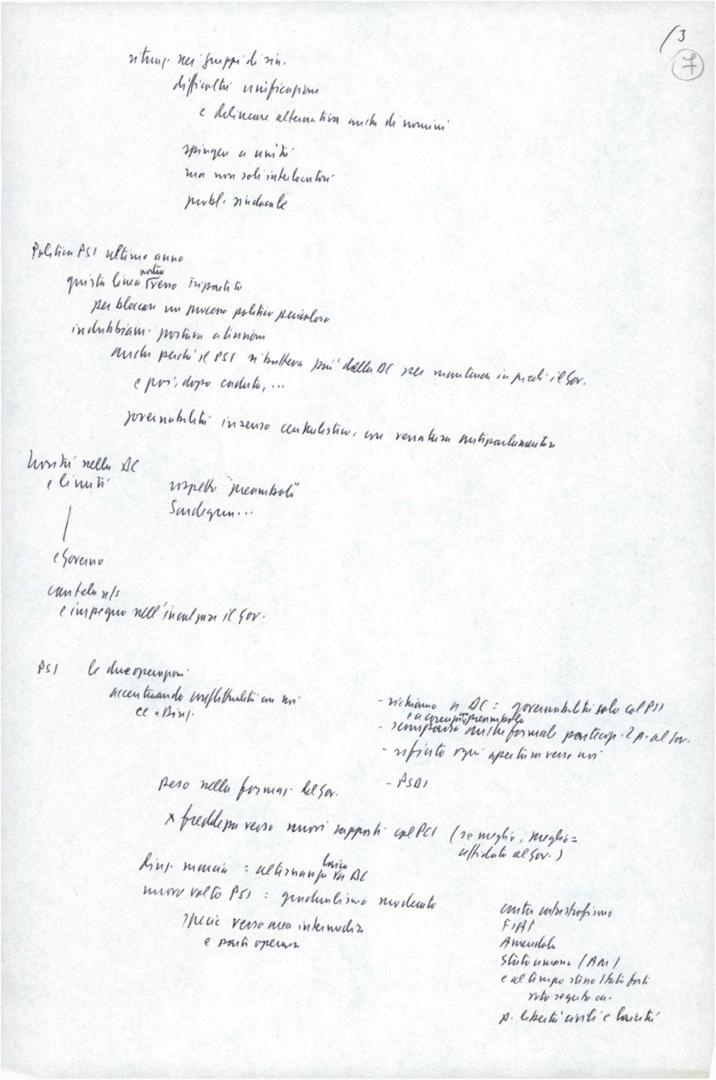 /3
7
situaz. nei gruppi di sin.
difficoltà unificazioni
e delineare alternativa anche di uomini
spingere a unità
ma non soli interlocutori
probl. sindacale
Politica PSI ultimo anno
questa linea verso tripartito
nostra
per bloccare un processo politico pericoloso
indubbiam. portava a tensioni
anche perché il PSI si batteva più della DC per mantenere in piedi il Gov.
e poi, dopo caduta, ...
governabilità in senso centralistico, con venatura antiparlamentare
Novità nella DC
e limiti
rispetto "preamboli"
Sardegna...
e Governo
cautela ns/
e impegno nell' il Gov.
PSI le due operazioni
accentuando conflittualità con noi
- richiamo a DC: governabilità solo col PSI
e a preambolo
- scomparsa anche formale particip. 2 p. al Gov.
- rifiuto ogni apertura verso noi
- PSDI
peso nella formaz. del Gov.
x freddezza verso nuovi rapporti col PCI (se meglio, meglio =
affidato al Gov.)
= alternanza DC
laica
nuovo volto PSI = gradualismo moderato
specie verso area intermedia
e parti operaia
contro catastrofismo
FIAT
Amendola
Stato (AM)
e al tempo stesso Stato forte
p. libertà civili e laicità